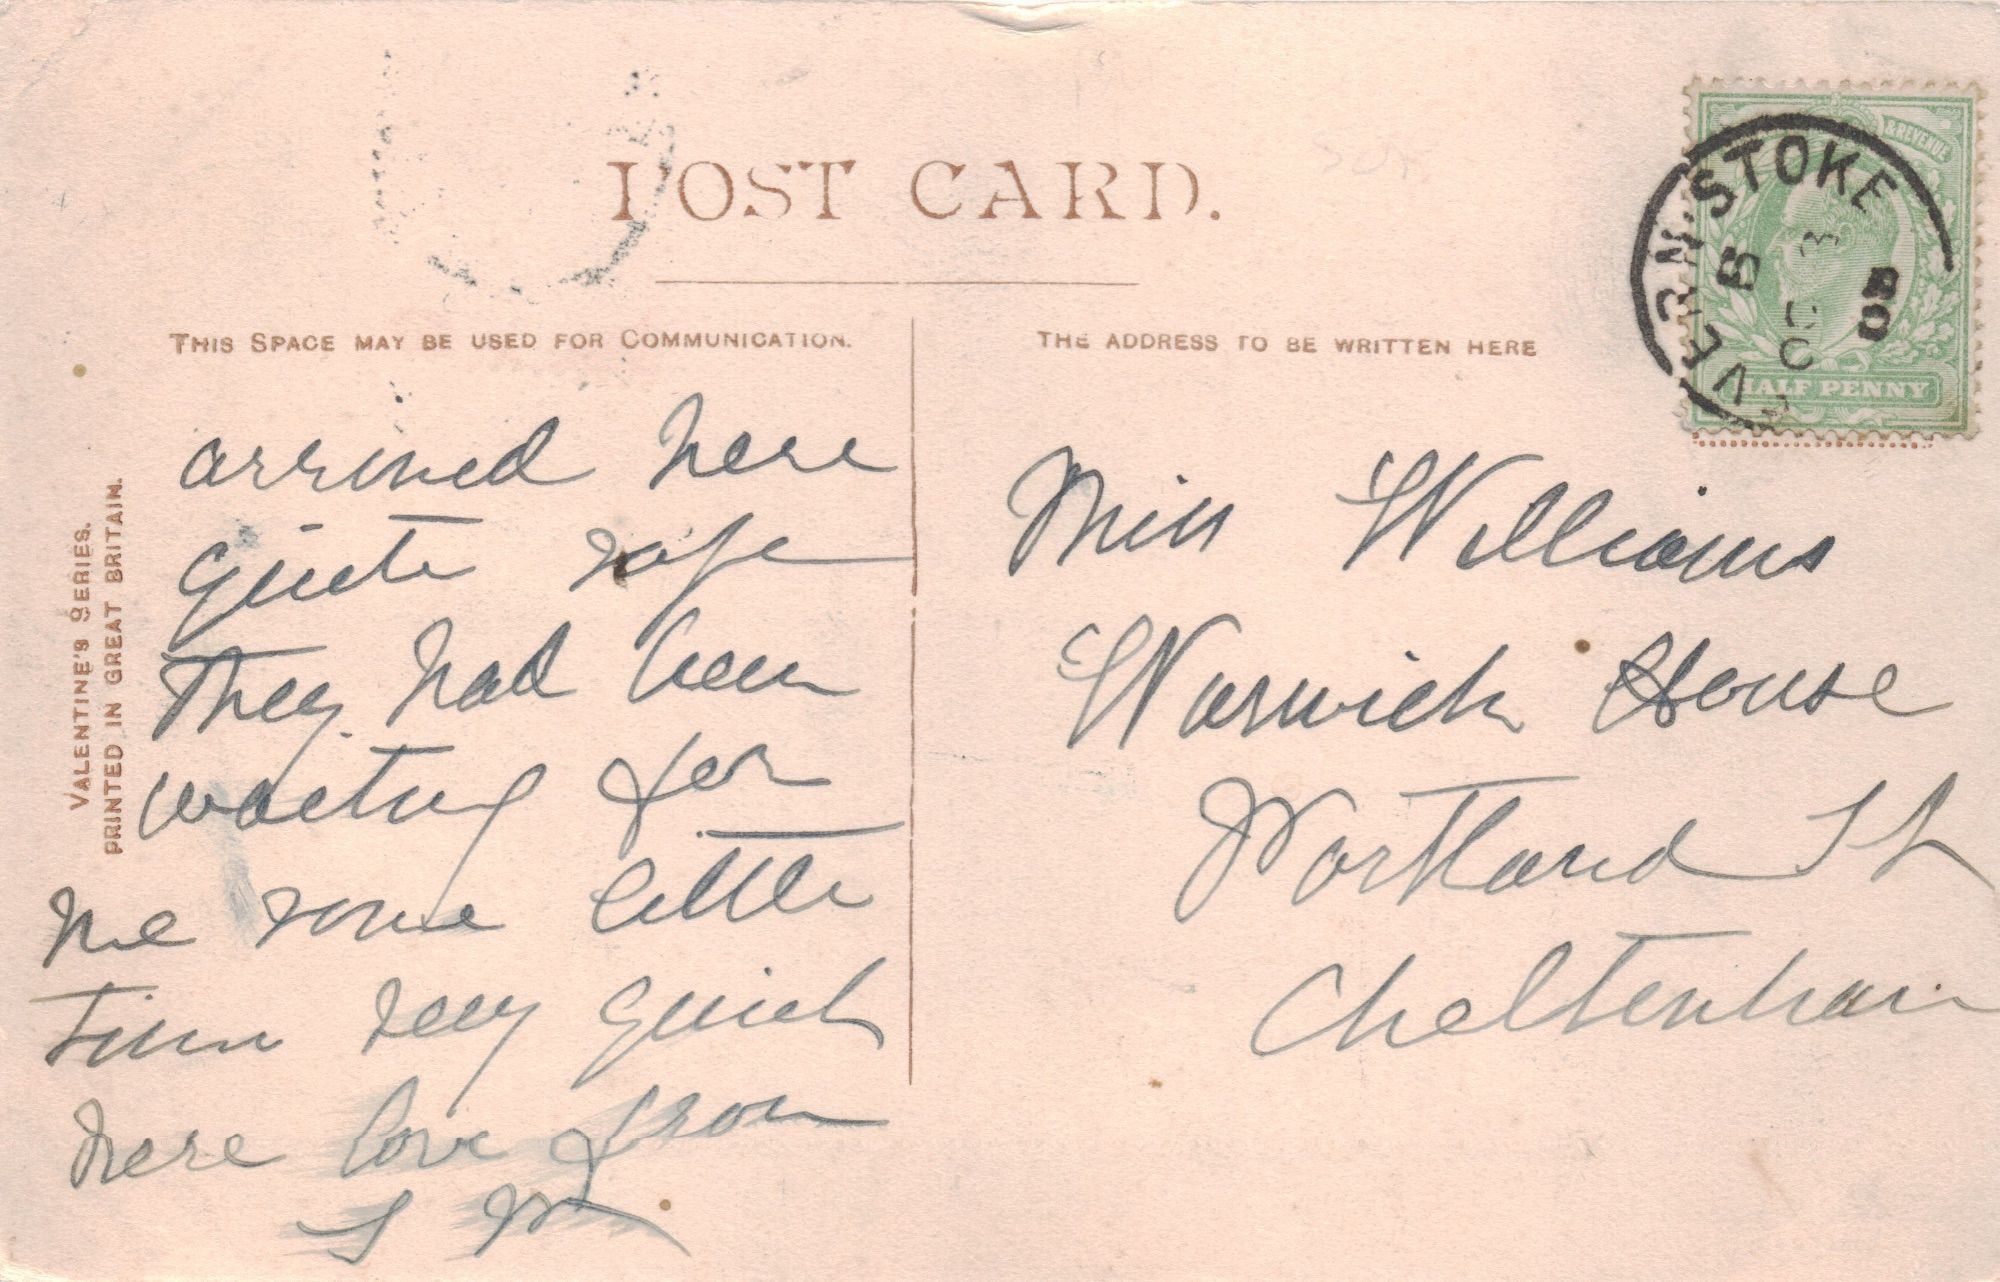 POST CARD.
THIS SPACE MAY BE USED FOR COMMUNICATION.
THE ADDRESS TO BE WRITTEN HERE
VALENTINE'S SERIES.
PRINTED IN GREAT BRITAIN.
arrived here
quite safe
They had been
waiting for
me some little
time very quiet
here love from
S M
Miss Williams
Warwick House
Portland St
Cheltenham
& REVENUE
HALF PENNY
SEVERN·STOKE
B
OC 3
08